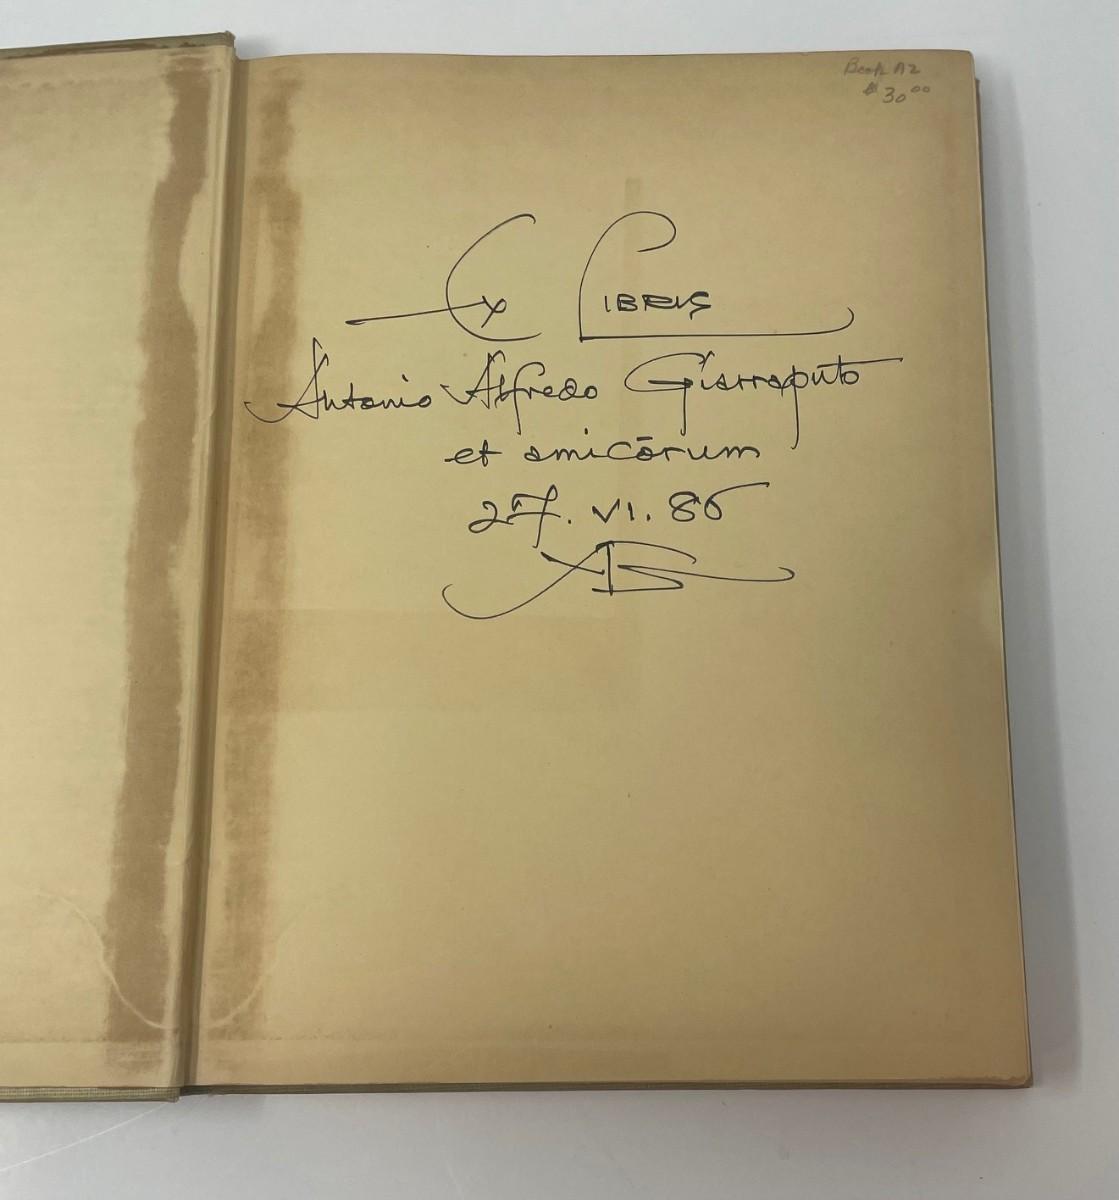 Book A2
$30.00
Ex Libris
Antonio Alfredo Giarraputo
et amicōrum
27. VI. 86